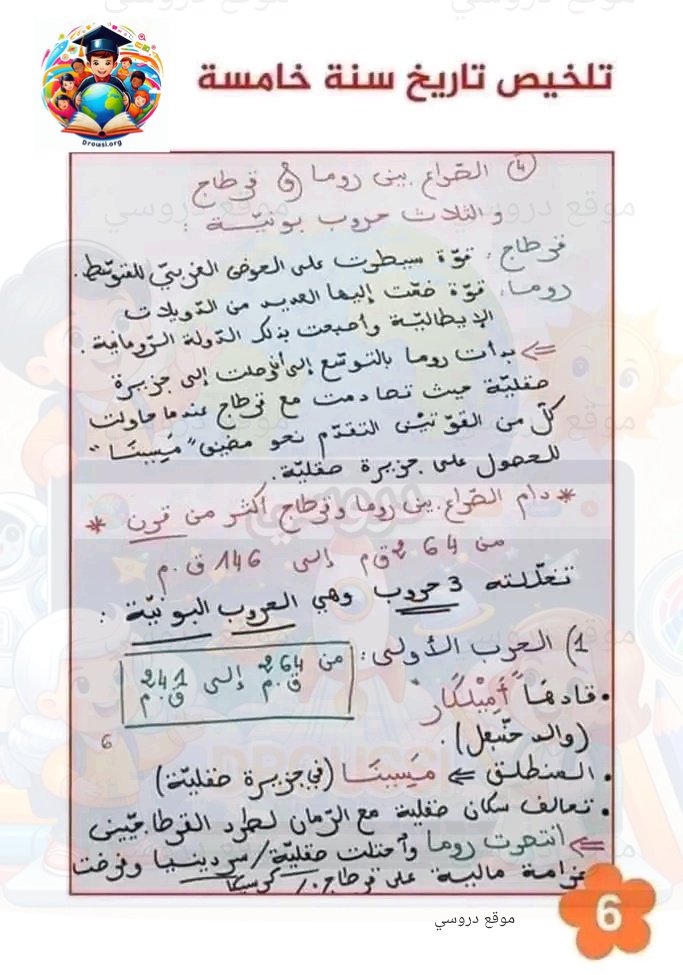 تلخيص تاريخ سنة خامسة
Drousi.org
④ الصّراع بين روما و قرطاج
والثلاث حروب بونيّة :
قرطاج : قوّة سيطرت على الحوض الغربيّ للمتوسّط .
روما : قوّة ضمّت إليها العديد من الدّويلات
الإيطاليّة وأصبحت بذلك الدّولة الرّومانية .
⇐ بدأت روما بالتوسّع إلى أن وصلت إلى جزيرة
صقليّة حيث تصادمت مع قرطاج عندما حاولت
كلّ من القوّتين التقدّم نحو مضيق "مَسِينَا"
للحصول على جزيرة صقليّة .
* دام الصّراع بين روما وقرطاج أكثر من قرن *
من 264 ق.م إلى 146 ق.م
تخلّلته 3 حروب وهي الحروب البونيّة :
1) الحرب الأولى :
من 264 ق.م إلى 241 ق.م
• قادها "أَمِيلْكَار"
(والد حنّبعل) .
6
• المنطلق ⇐ مَيسِينَا (في جزيرة صقليّة)
• تحالف سكان صقلية مع الرّمان لطرد القرطاجيّين
⇐ انتصرت روما وأحتلت صقليّة / سردينيا وفرضت
غرامة مالية على قرطاج . / كورسيكا
6
موقع دروسي